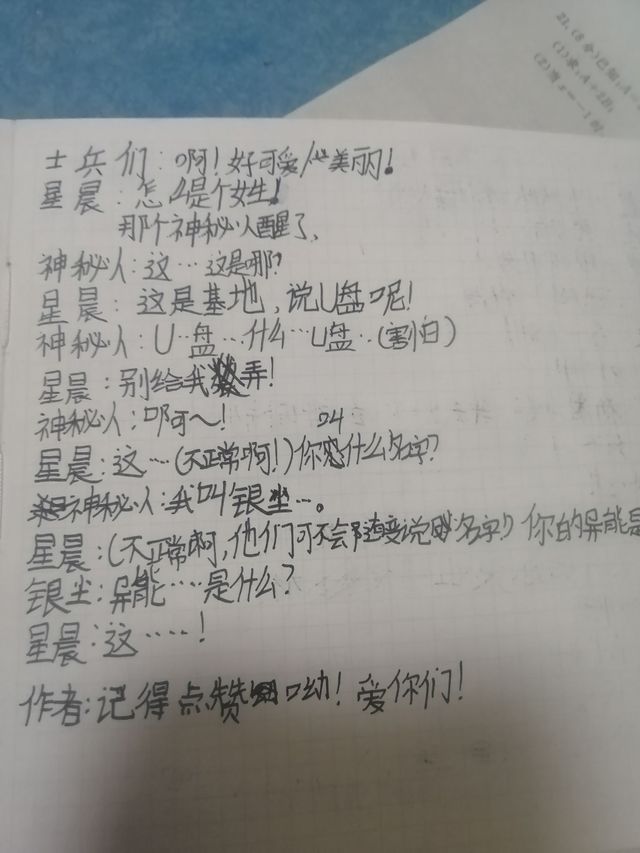 21.(8分)已知,A=
(1)求,A+2B;
(2)当x=-1时
士兵们:啊!好可爱/美丽!
星晨:怎么是个女生!
那个神秘人醒了,
神秘人:这…这是哪?
星晨:这是基地,说U盘呢!
神秘人:U…盘…什么…U盘…(割白)
星晨:别给我装弄!
神秘人:啊~!
星晨:这…(不正常啊!)你叫什么名字?
神秘人:我叫银尘…。
星晨:(不正常啊,他们可不会随变说名字)你的异能是
银尘:异能……是什么?
星晨:这……!
作者:记得点赞呦!爱你们!